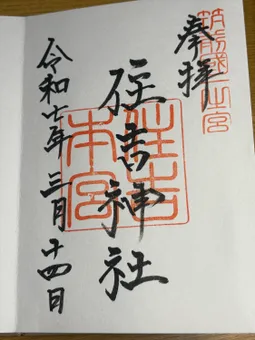 奉拝
筑前國一之宮
住吉神社
住吉
本宮
令和七年 三月十四日